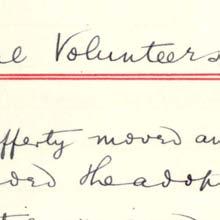 Volunteers
fferty moved an
ded the adop